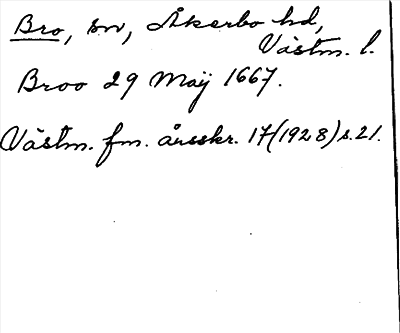 Bro, sn, Åkerbo hd,
Västm. l.
Broo 29 Maÿ 1667.
Västm. fm. årsskr. 17(1928)s.21.